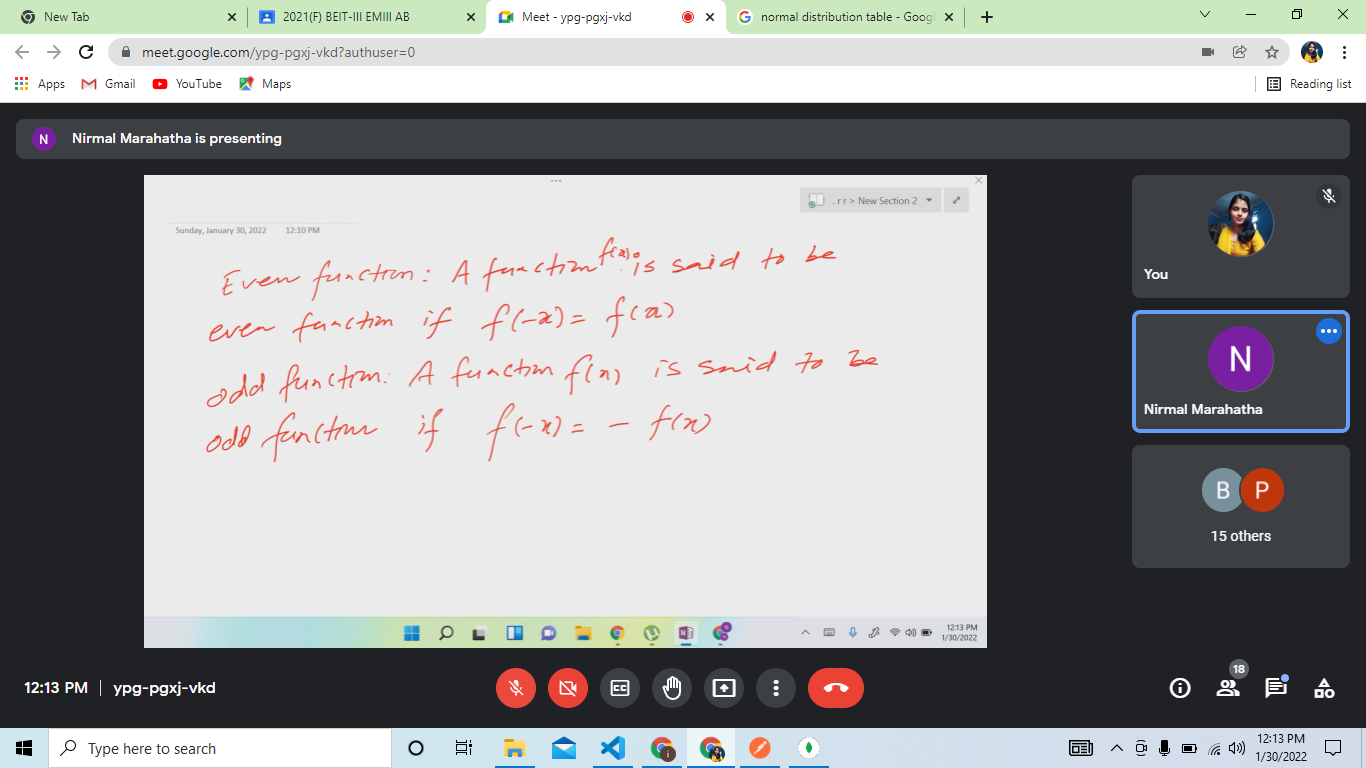 New Tab
2021(F) BEIT-III EMIII AB
Meet - ypg-pgxj-vkd
normal distribution table - Goog
meet.google.com/ypg-pgxj-vkd?authuser=0
Apps
Gmail
YouTube
Maps
Reading list
N
Nirmal Marahatha is presenting
. r r > New Section 2
Sunday, January 30, 2022 12:10 PM
Even function: A function f(x) is said to be
even function if f(-x) = f(x)
odd function: A function f(x) is said to be
odd function if f(-x) = - f(x)
12:13 PM
1/30/2022
You
N
Nirmal Marahatha
B P
15 others
12:13 PM | ypg-pgxj-vkd
CC
18
Type here to search
12:13 PM
1/30/2022